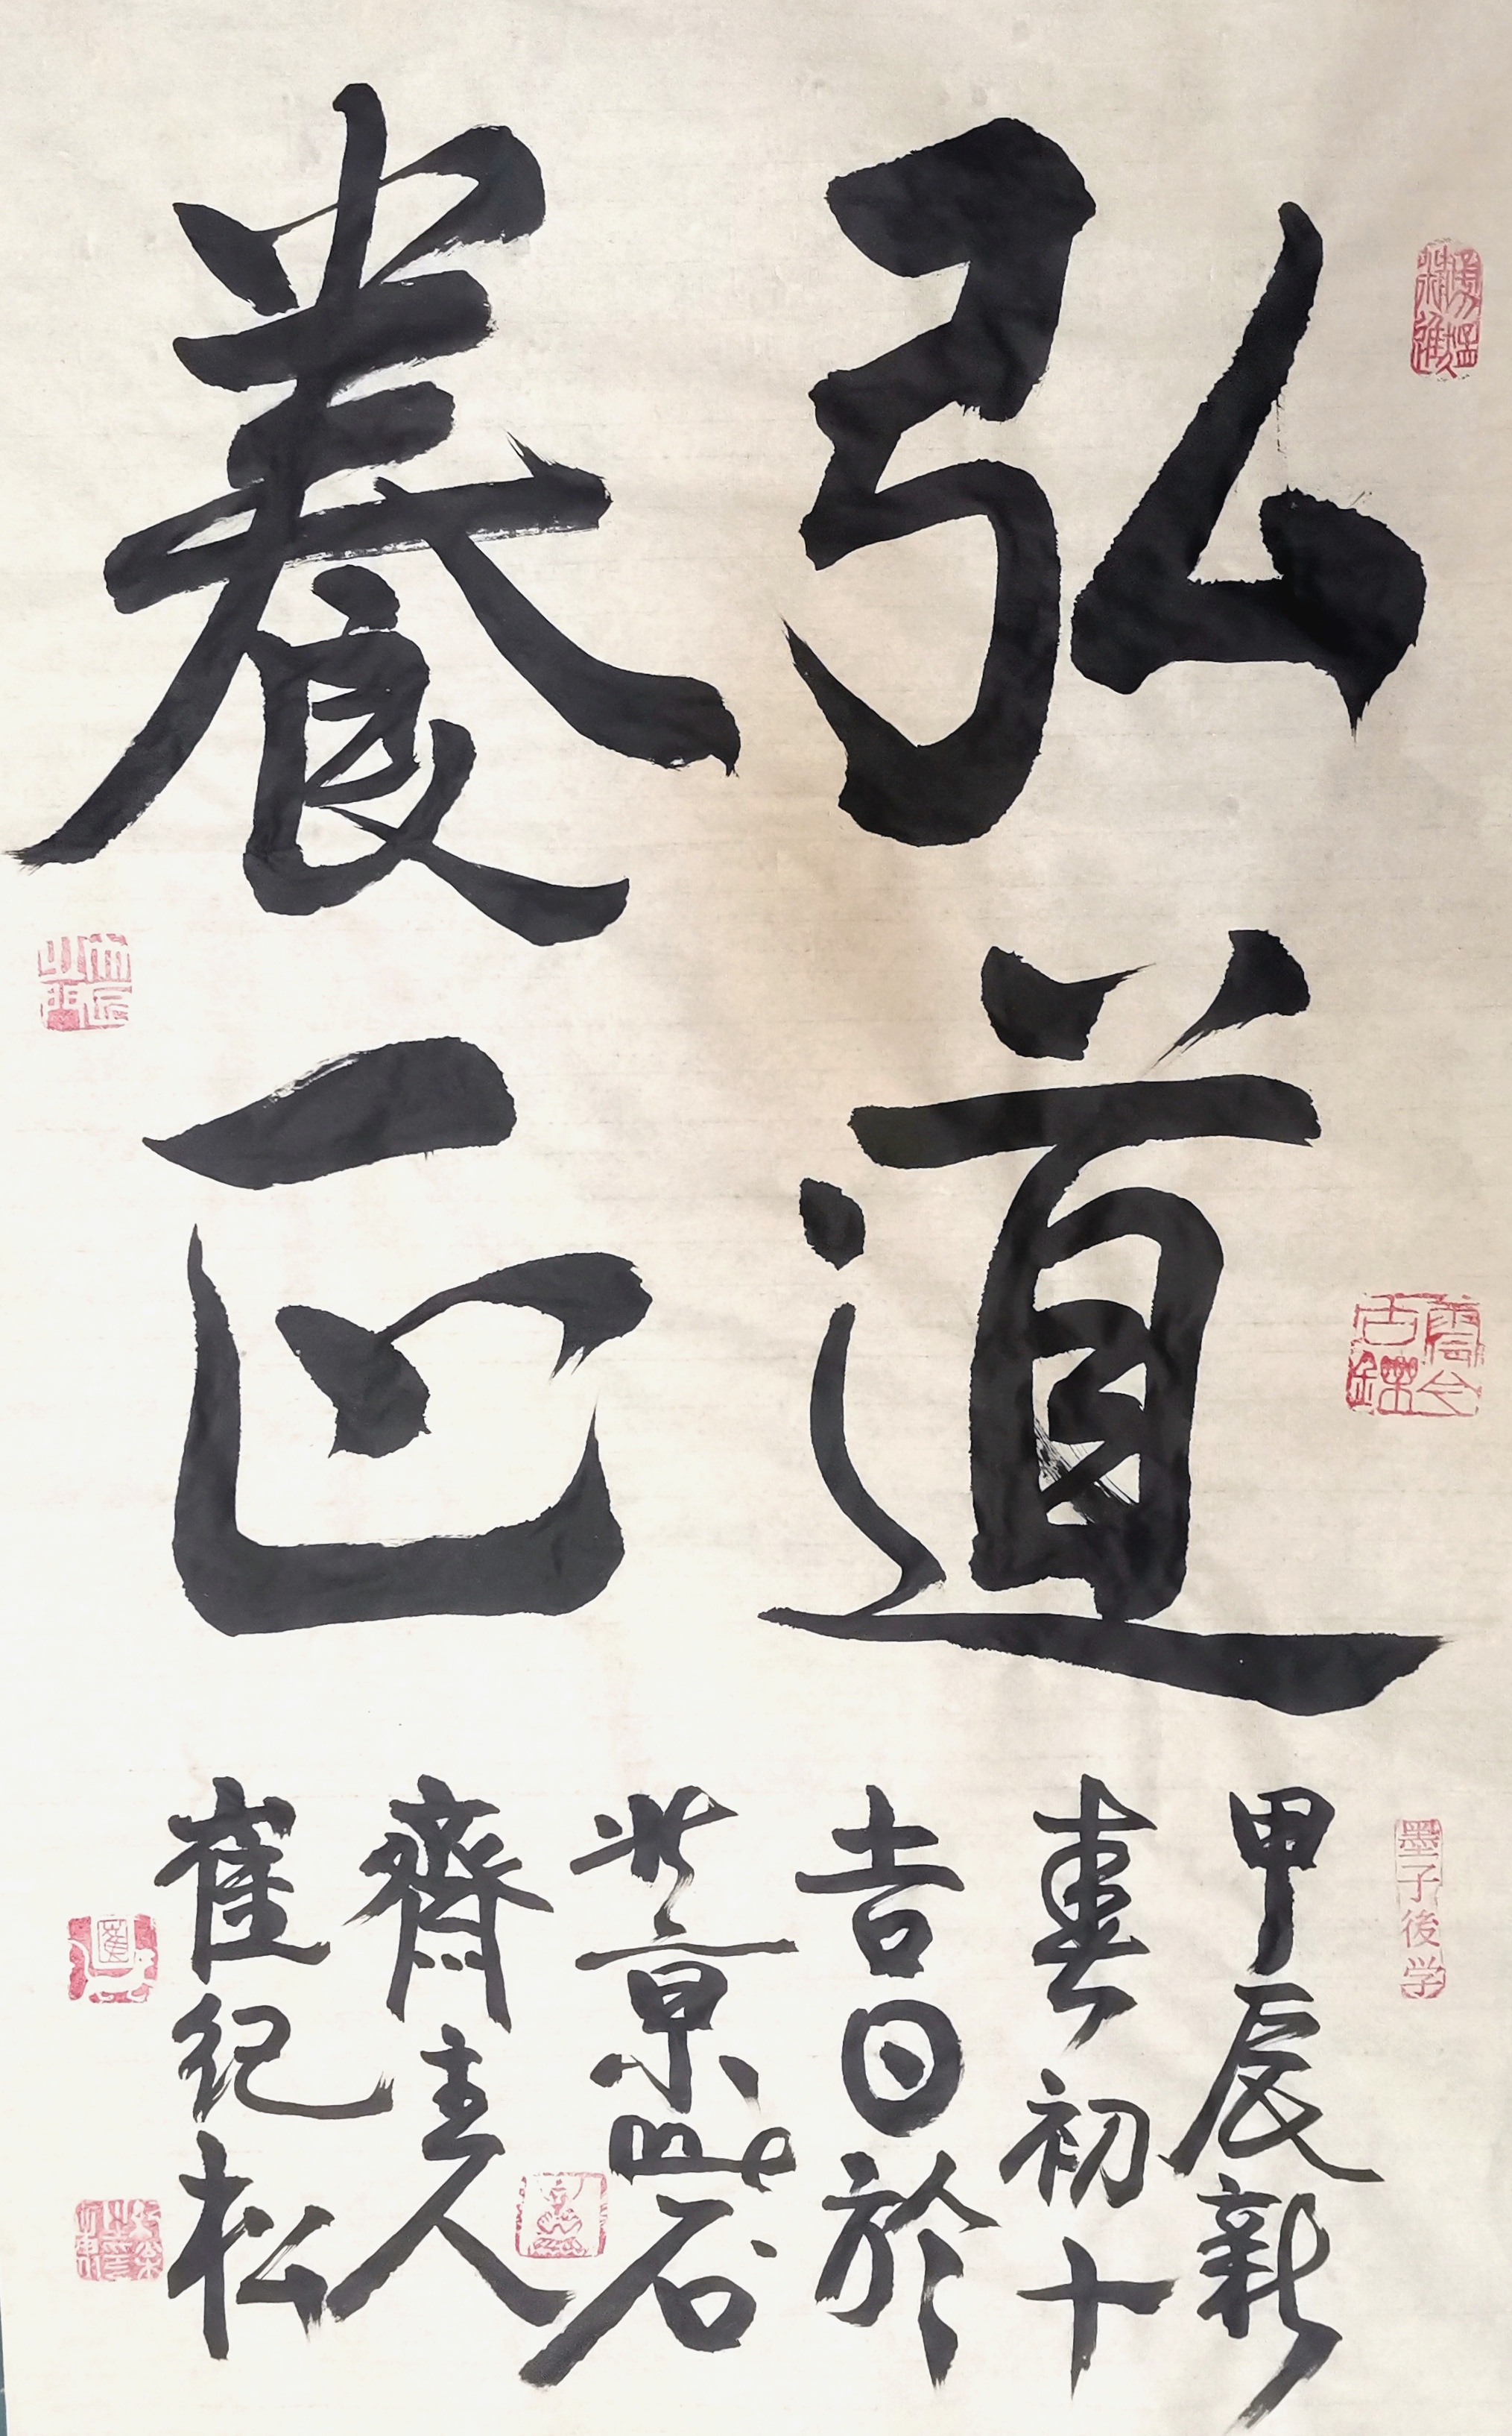 弘道
養正
甲辰新
春初十
吉日於
北京四石
齋主人
崔纪松
墨子後学